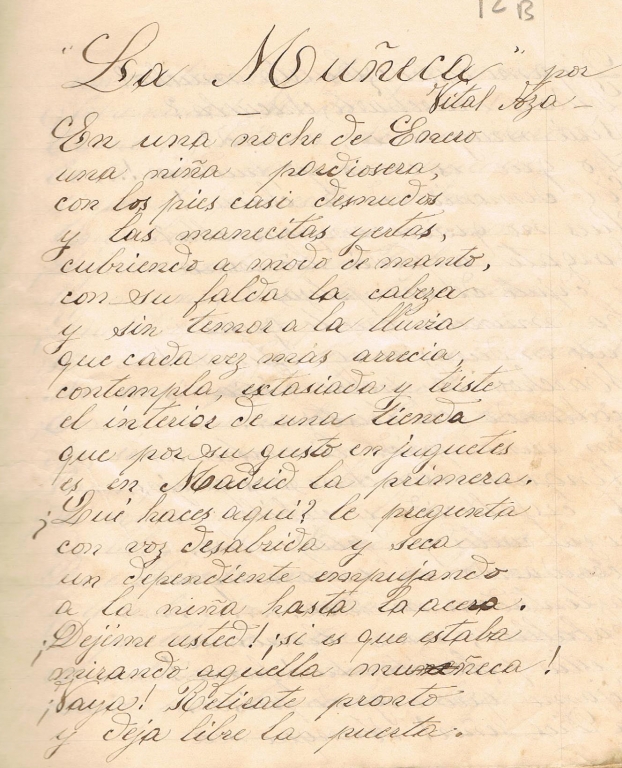 12 B
"La Muñeca" por
Vital Aza -
En una noche de Enero
una niña pordiosera,
con los pies casi desnudos
y las manecitas yertas,
cubriendo a modo de manto,
con su falda la cabeza
y sin temor a la lluvia
que cada vez más arrecia,
contempla, extasiada y triste
el interior de una tienda
que por su gusto en juguetes
es, en Madrid la primera.
¿Qué haces aquí? le pregunta
con voz desabrida y seca
un dependiente empujando
a la niña hasta la acera.
¡Dejéme usted! ¡si es que estaba
mirando aquella muñeca!
¡Vaya! Retirate pronto
y deja libre la puerta.